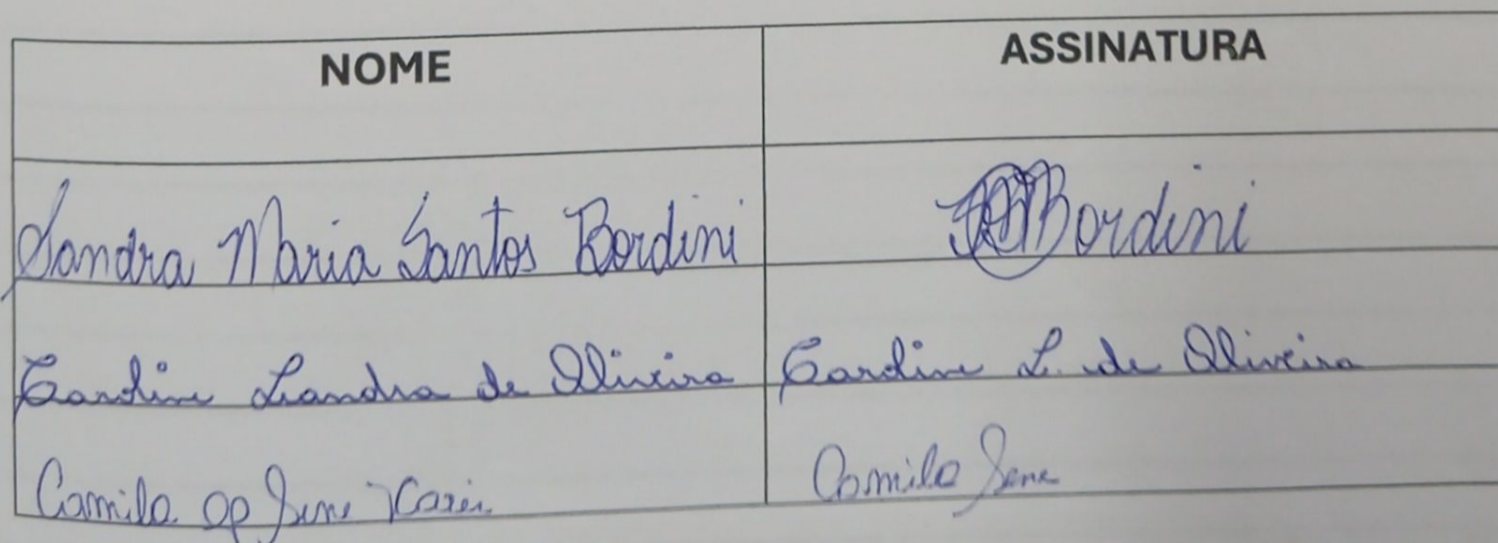 NOME ASSINATURA
Sandra Maria Santos Bordini Bordini
Leandra de Oliveira L. de Oliveira
Camila Ap Sene Camila Sene